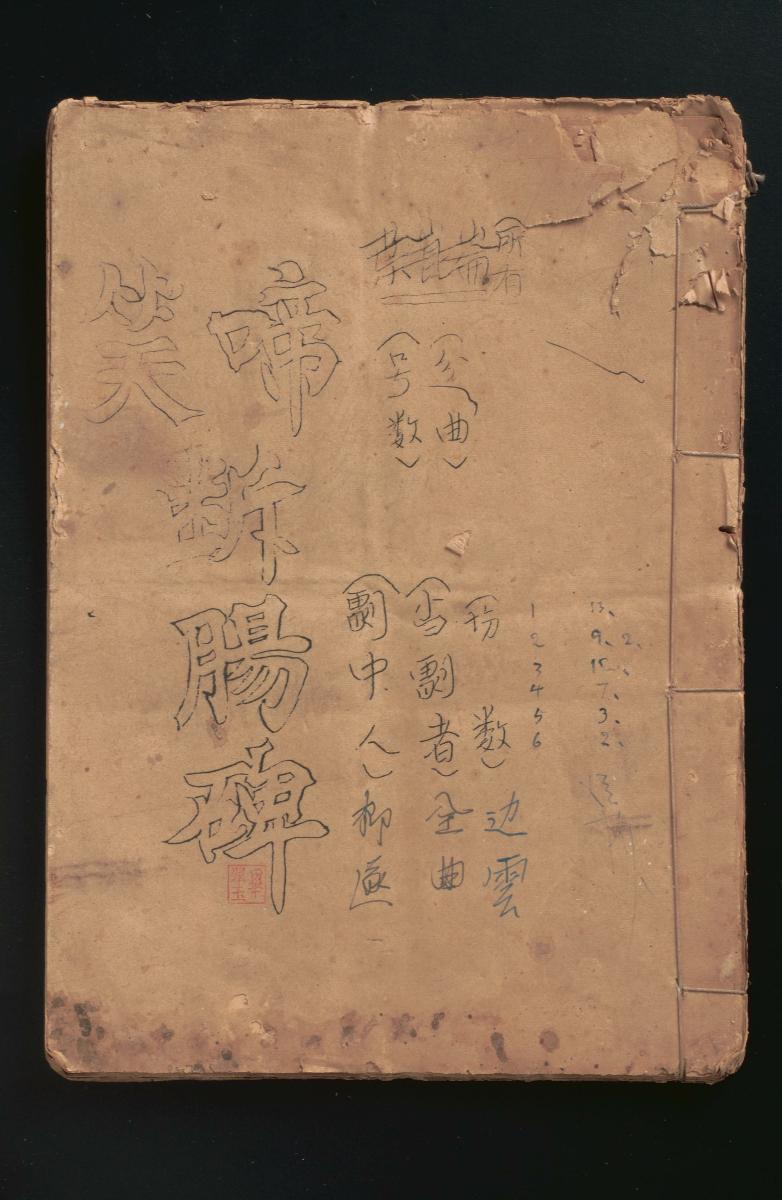 13、
9、2、
15、
7、
3、
2、
1
2
3
4
5
6
葉崑崙(所有
(全曲)
(号数)
(份数)边雲
劇者)全曲
(劇中人)柳
啼笑断腸碑